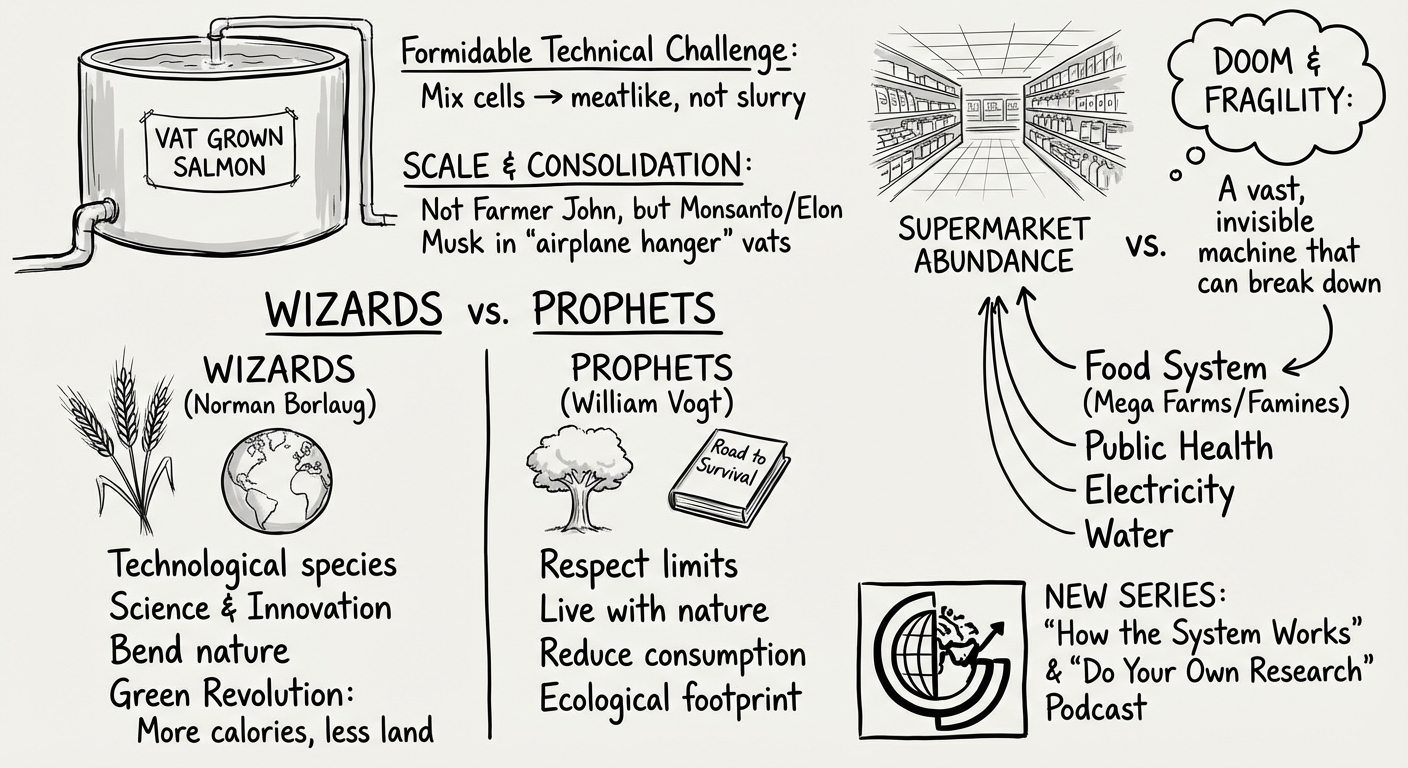 VAT GROWN
SALMON
Formidable Technical Challenge:
Mix cells → meatlike, not slurry
SCALE & CONSOLIDATION:
Not Farmer John, but Monsanto/Elon
Musk in "airplane hanger" vats
SUPERMARKET
ABUNDANCE
vs.
DOOM &
FRAGILITY:
A vast,
invisible
machine that
can break down
Food System
(Mega Farms/Famines)
Public Health
Electricity
Water
WIZARDS vs. PROPHETS
WIZARDS
(Norman Borlaug)
Technological species
Science & Innovation
Bend nature
Green Revolution:
More calories, less land
PROPHETS
(William Vogt)
Road to
Survival
Respect limits
Live with nature
Reduce consumption
Ecological footprint
NEW SERIES:
"How the System Works"
& "Do Your Own Research"
Podcast